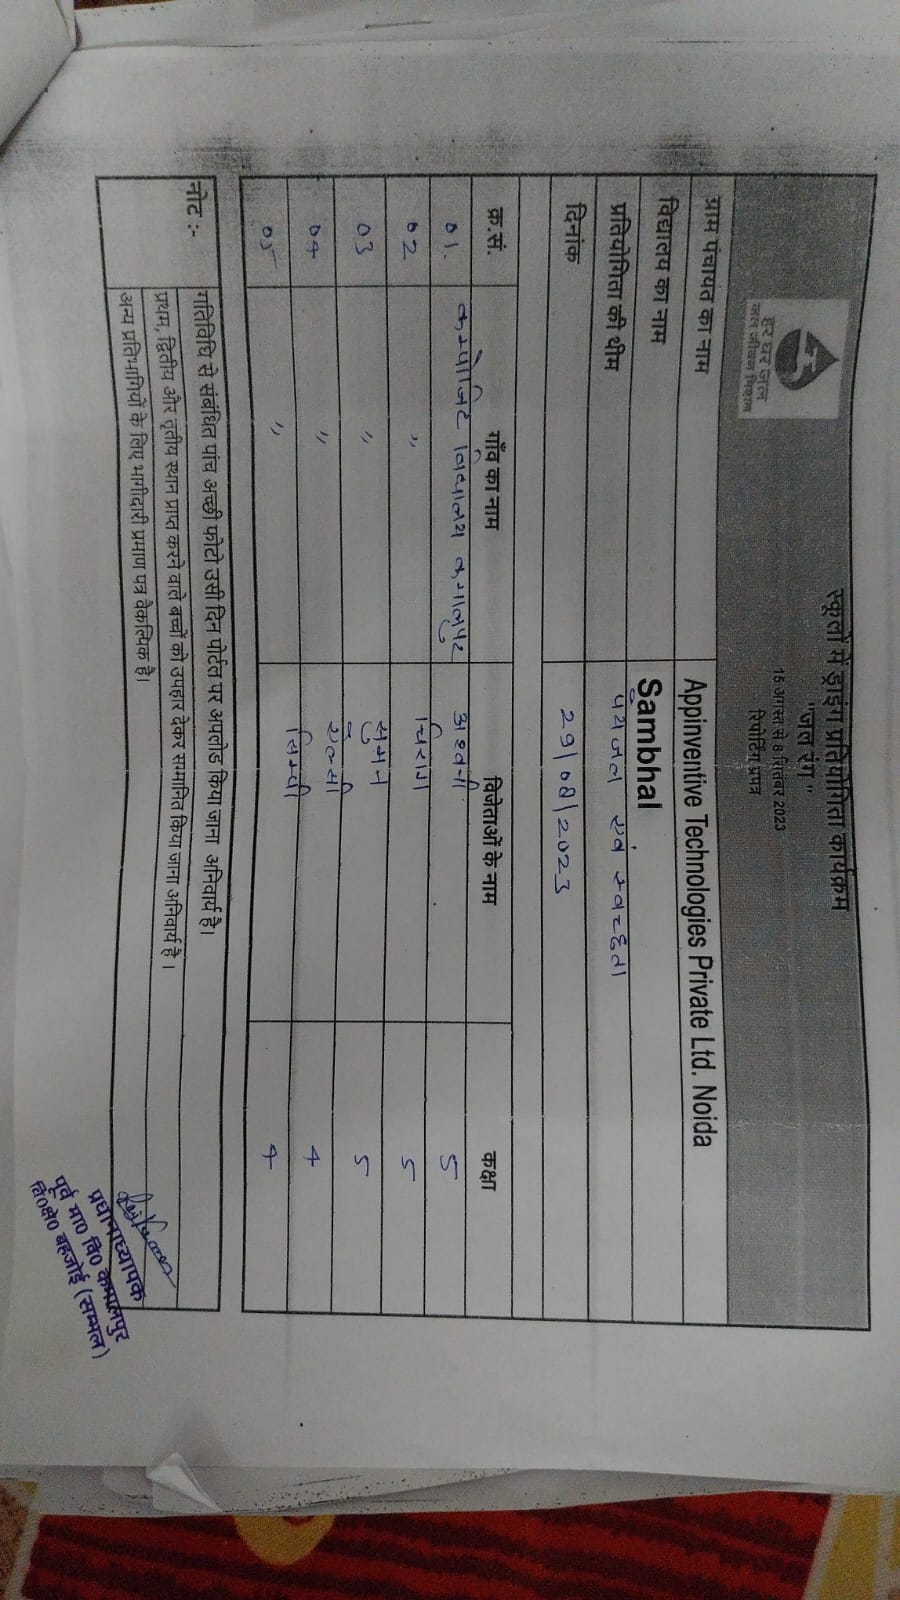 स्कूलों में ड्राइंग प्रतियोगिता कार्यक्रम
"जल रंग"
15 अगस्त से 8 सितंबर 2023
रिपोर्टिंग प्रपत्र
हर घर जल
जल जीवन मिशन
ग्राम पंचायत का नाम Appinventive Technologies Private Ltd. Noida
विद्यालय का नाम Sambhal
प्रतियोगिता की थीम पेयजल एवं स्वच्छता
दिनांक 29/08/2023
क्र.सं. गाँव का नाम विजेताओं के नाम कक्षा
01. कम्पोजिट विद्यालय कमालपुर अश्वनी 5
02 " चिराग 5
03 " सुमन 5
04 " 4
05 " 4
नोट :- गतिविधि से संबंधित पांच अच्छी फोटो उसी दिन पोर्टल पर अपलोड किया जाना अनिवार्य है।
प्रथम, द्वितीय और तृतीय स्थान प्राप्त करने वाले बच्चों को उपहार देकर सम्मानित किया जाना अनिवार्य है ।
अन्य प्रतिभागियों के लिए भागीदारी प्रमाण पत्र वैकल्पिक है।
प्रधानाध्यापक
पूर्व मा० वि० कमालपुर
वि०क्षे० बहजोई (सम्भल)